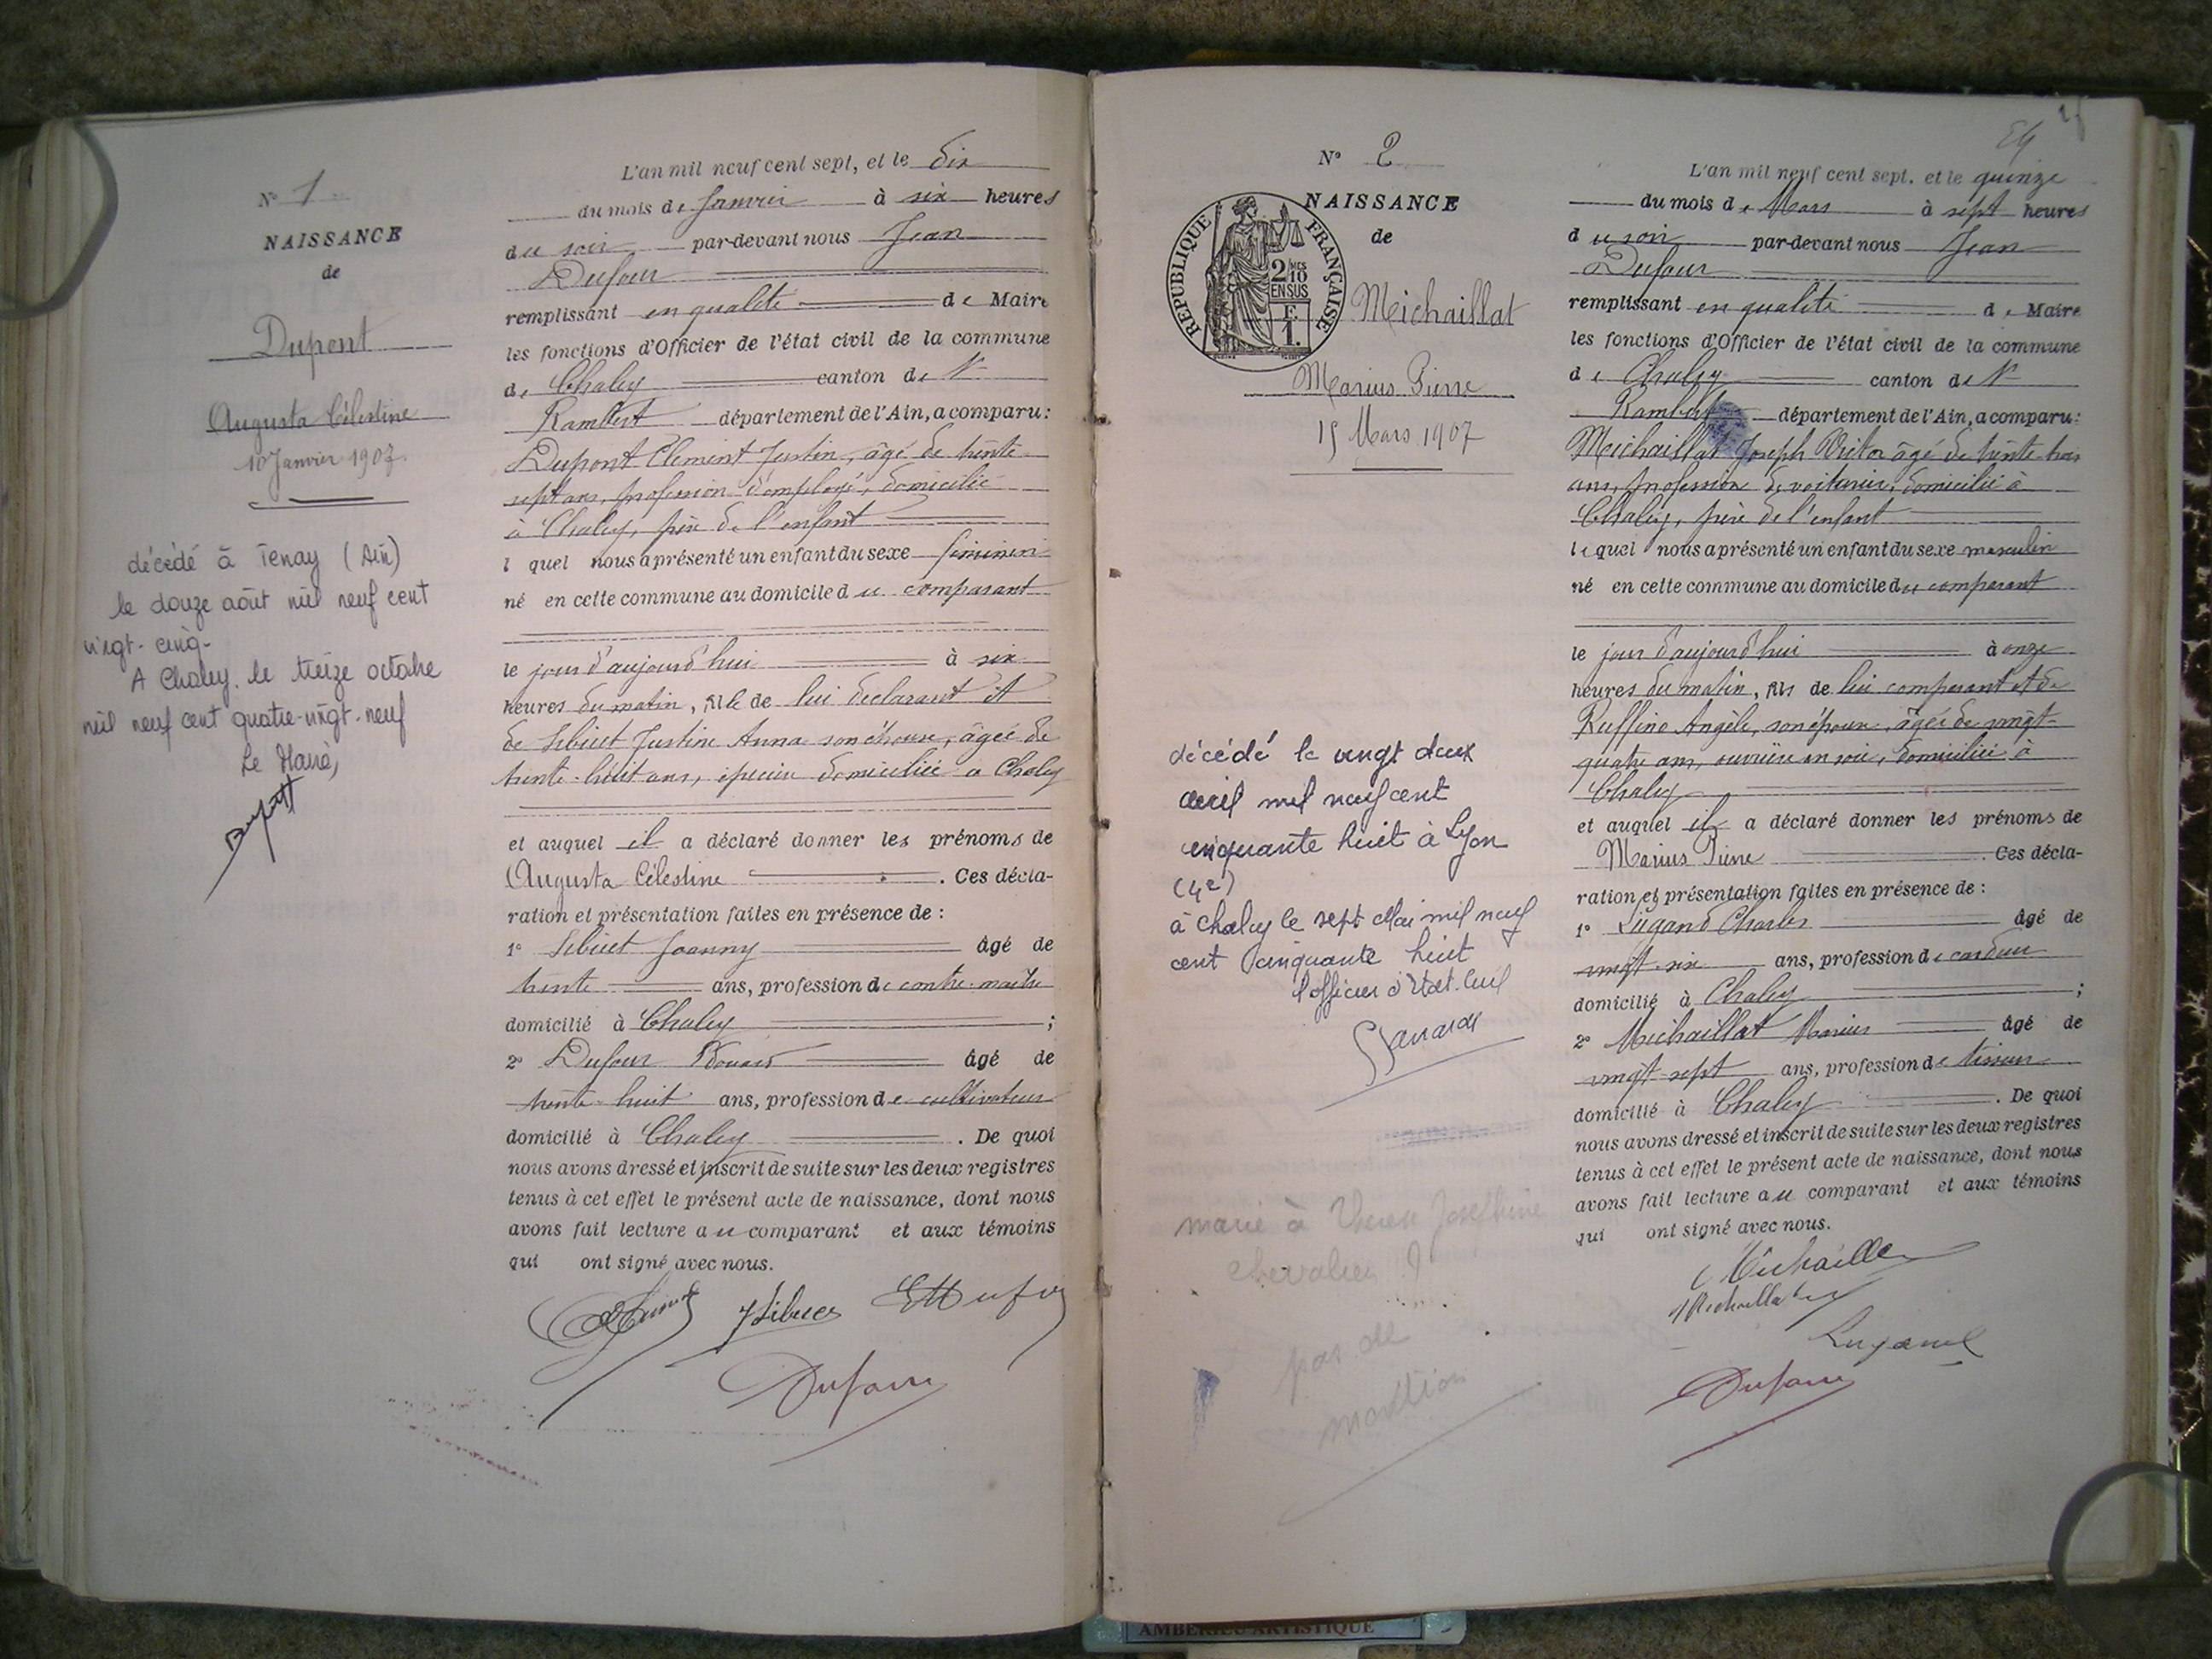 N° 1
NAISSANCE
de
Dupont
Augusta Célestine
10 Janvier 1907
décédé à Tenay (Ain)
le douze août mil neuf cent
vingt-cinq-
A Chaley, le treize octobre
mil neuf cent quatre-vingt-neuf
Le Maire,
L'an mil neuf cent sept, et le dix
du mois de Janvier à six heures
du soir par-devant nous Jean
Dufour
remplissant en qualité de Maire
les fonctions d'Officier de l'état civil de la commune
de Chaley canton de St
Rambert département de l'Ain, a comparu:
Dupont Clément Justin, âgé de trente
sept ans, profession d'employé, domicilié
à Chaley, père de l'enfant
l quel nous a présenté un enfant du sexe féminin
né en cette commune au domicile du comparant
le jour d'aujourd'hui à six
heures du matin, fille de lui déclarant et
de Justine Anna son épouse, âgée de
trente-huit ans, domiciliée à Chaley
et auquel il a déclaré donner les prénoms de
Augusta Célestine . Ces décla-
ration et présentation faites en présence de :
1° Joanny âgé de
trente ans, profession de contre-maître
domicilié à Chaley ;
2° Dufour âgé de
trente-huit ans, profession de cultivateur
domicilié à Chaley . De quoi
nous avons dressé et inscrit de suite sur les deux registres
tenus à cet effet le présent acte de naissance, dont nous
avons fait lecture au comparant et aux témoins
qui ont signé avec nous.
Dufour
N° 2
NAISSANCE
de
REPUBLIQUE FRANÇAISE
2/10 MES
EN SUS
F.
1.
Michaillat
Marius Pierre
15 Mars 1907
décédé le vingt deux
avril mil neuf cent
cinquante huit à Lyon
(4e)
à Chaley le sept Mai mil neuf
cent cinquante huit
l'officier d'Etat-Civil
marié à Thérèse Joséphine
chevalier ?
pas de
mention
24
L'an mil neuf cent sept, et le quinze
du mois de Mars à sept heures
du soir par-devant nous Jean
Dufour
remplissant en qualité de Maire
les fonctions d'Officier de l'état civil de la commune
de Chaley canton de St
Rambert département de l'Ain, a comparu:
Michaillat Joseph Victor âgé de trente-trois
ans, profession de voiturier, domicilié à
Chaley, père de l'enfant
lequel nous a présenté un enfant du sexe masculin
né en cette commune au domicile du comparant
le jour d'aujourd'hui à onze
heures du matin, fils de lui comparant et de
Ruffino Angèle, son épouse, âgée de vingt-
quatre ans, ouvrière en soie, domiciliée à
Chaley
et auquel il a déclaré donner les prénoms de
Marius Pierre . Ces décla-
ration et présentation faites en présence de :
1° Lugand Charles âgé de
vingt-six ans, profession de cardeur
domicilié à Chaley ;
2° Michaillat Marius âgé de
vingt-sept ans, profession de tisseur
domicilié à Chaley . De quoi
nous avons dressé et inscrit de suite sur les deux registres
tenus à cet effet le présent acte de naissance, dont nous
avons fait lecture au comparant et aux témoins
qui ont signé avec nous.
Lugand
Dufour
AMBERIEU ARTISTIQUE